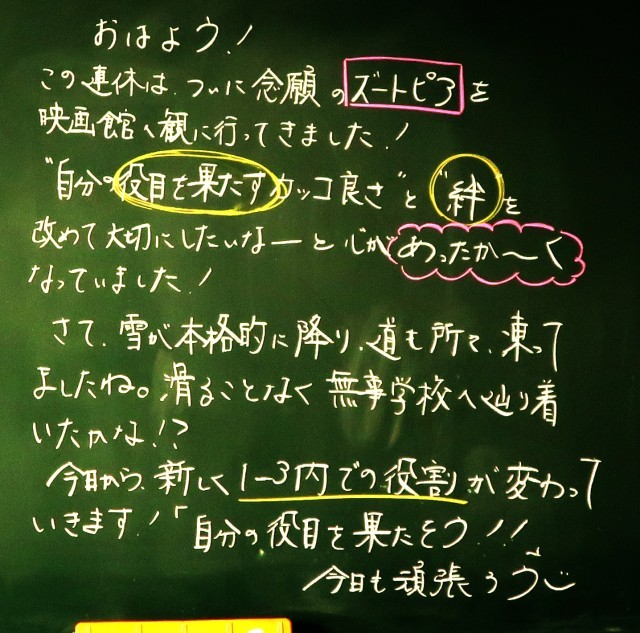 おはよう!
この連休は、ついに念願のズートピアを
映画館へ観に行ってきました!
"自分の役目を果たすカッコ良さ"と"絆"を
改めて大切にしたいなーと心があったか〜く
なっていました!
さて、雪が本格的に降り、道も所々、凍って
ましたね。滑ることなく無事学校へ辿り着
いたかな!?
今日から、新しく1-3内での役割が変わって
いきます!「自分の役目を果たそう!!
今日も頑張ろう